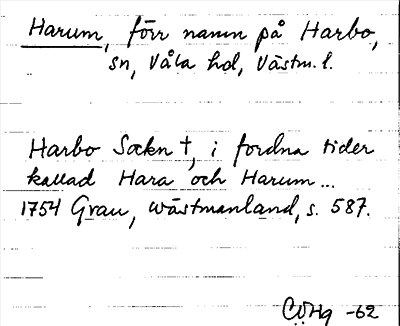 Harum, förr namn på Harbo,
sn, Våla hd, Västm. l.
Harbo Sockn †, i fordna tider
kallad Hara och Harum...
1754 Grau, Wästmanland, s. 587.
CÖHg -62